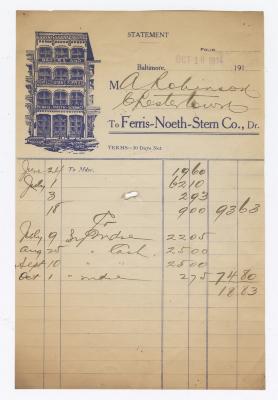 STATEMENT
FOLIO
OCT 10 1914
Baltimore, 191
M A Robinson
Chestertown
To Ferris-Noeth-Stern Co., Dr.
TERMS—30 Days Net
June 24 To Mdse. 1960
July 1 6210
3 293
18 900 9363
July 9 By mdse 2205
Aug 25 " Cash 2500
Sept 10 " " 2500
Oct 1 " mdse 275 7480
1883